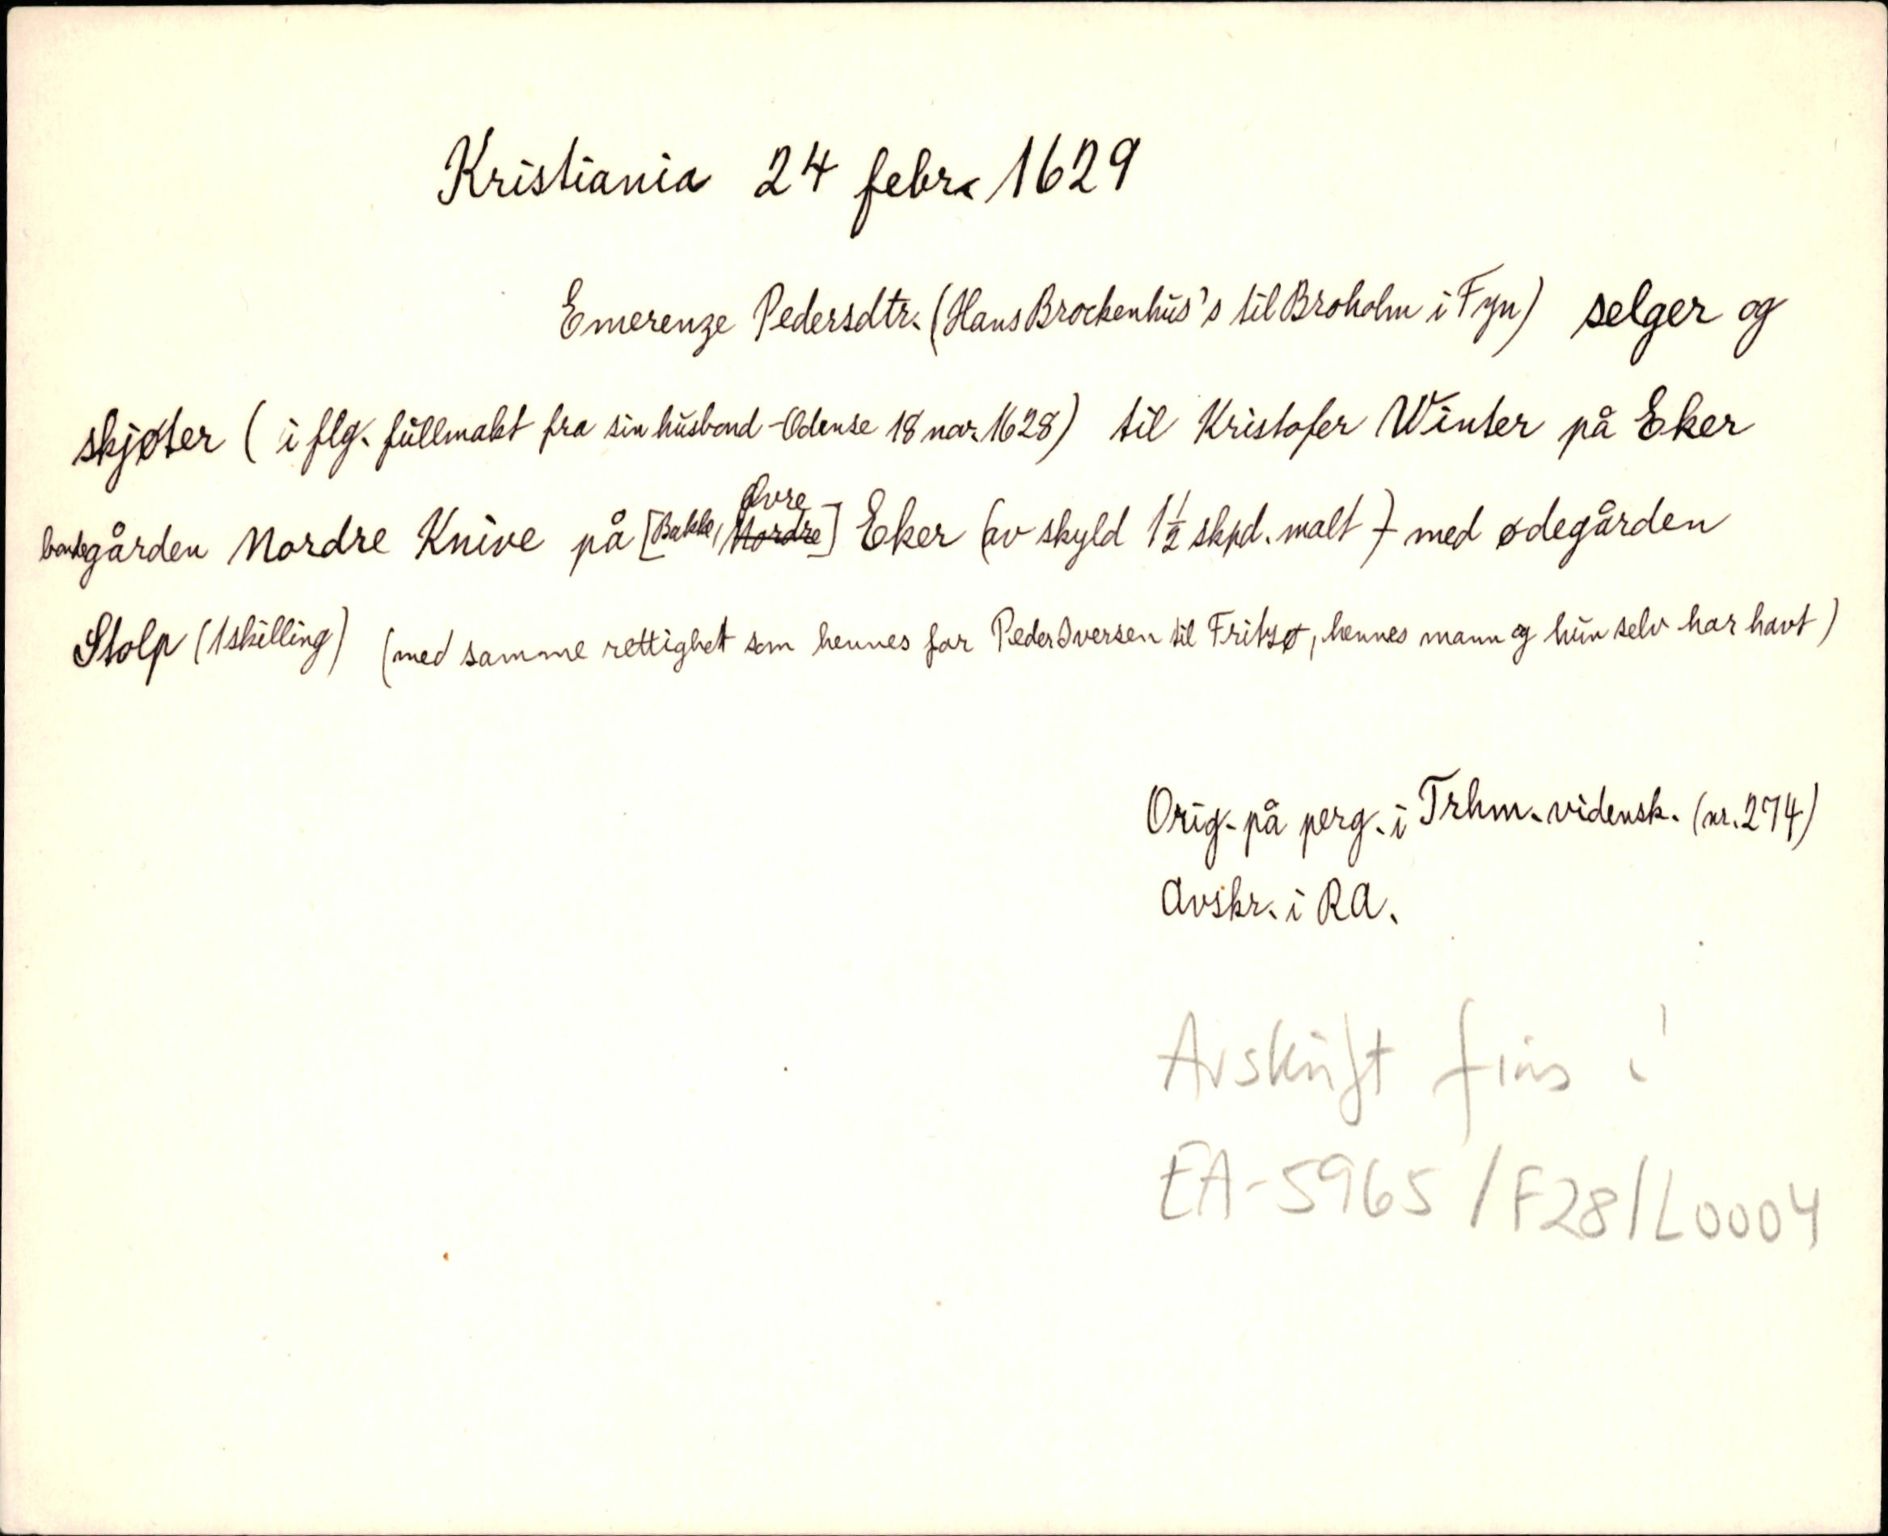 Kristiania 24 febr. 1629
Emerenze Pedersdtr. (Hans Brockenhus's til Broholm i Fyn) selger og
skjøter (i flg. fullmakt fra sin husbond - Odense 18 nov. 1628) til Kristofer Winter på Eker
Øvre
bondegården Nordre Knive på [Bakke, Nordre] Eker (av skyld 1½ skpd. malt) med ødegården
Stolp (1 skilling) (med samme rettighet som hennes far Peder Iversen til Fritsø, hennes mann og hun selv har havt)
Orig. på perg. i Trhm. vidensk. (nr. 274)
Avskr. i RA.
Avskrift fins i
EA-5965/F28/L0004